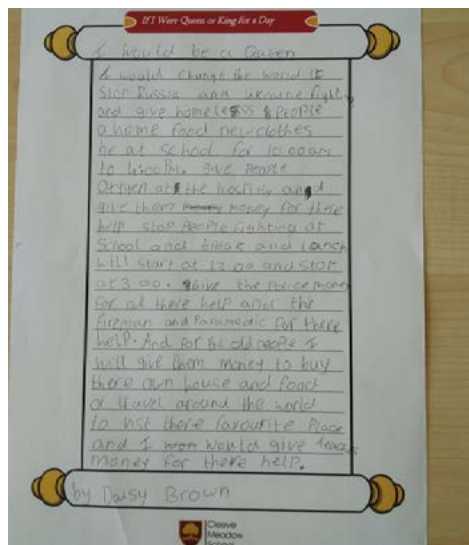 If I Were Queen or King for a Day
I would be a Queen
I would change the world to
Stop Russia and ukraine fighting
and give homeless people
a home food new clothes
be at school for 10:00am
to give people
Oxygen at the and
give them money for there
help stop people fighting at
School and break and Lunch
will start at 13:00 and stop
at 3:00. Give the Police money
for all there help and the
fireman and Paramedic for there
help. And for the old people I
will give them money to buy
there own house and food
or travel around the world
to vist there favourite Place
and I would give Teachers
money for there help.
by Daisy Brown
Cleeve
Meadow
School